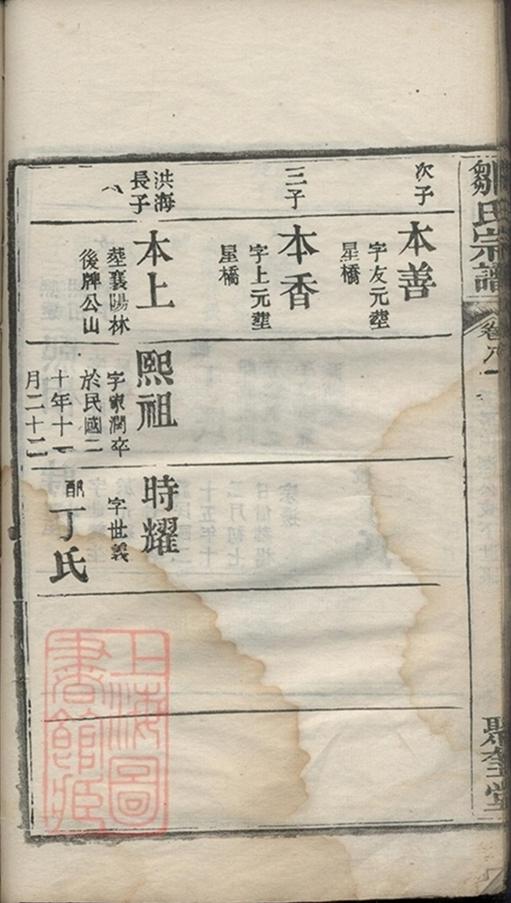 鄒氏宗譜
卷八
聚奎堂
次子
本善
字友元塟
星橋
三子
本香
字上元塟
星橋
洪海
長子
本上
塟襄陽林
後牌公山
熙祖
字東潤卒
於民國二
十年十一
月二十二
時耀
字世義
配
丁氏
上海圖
書館